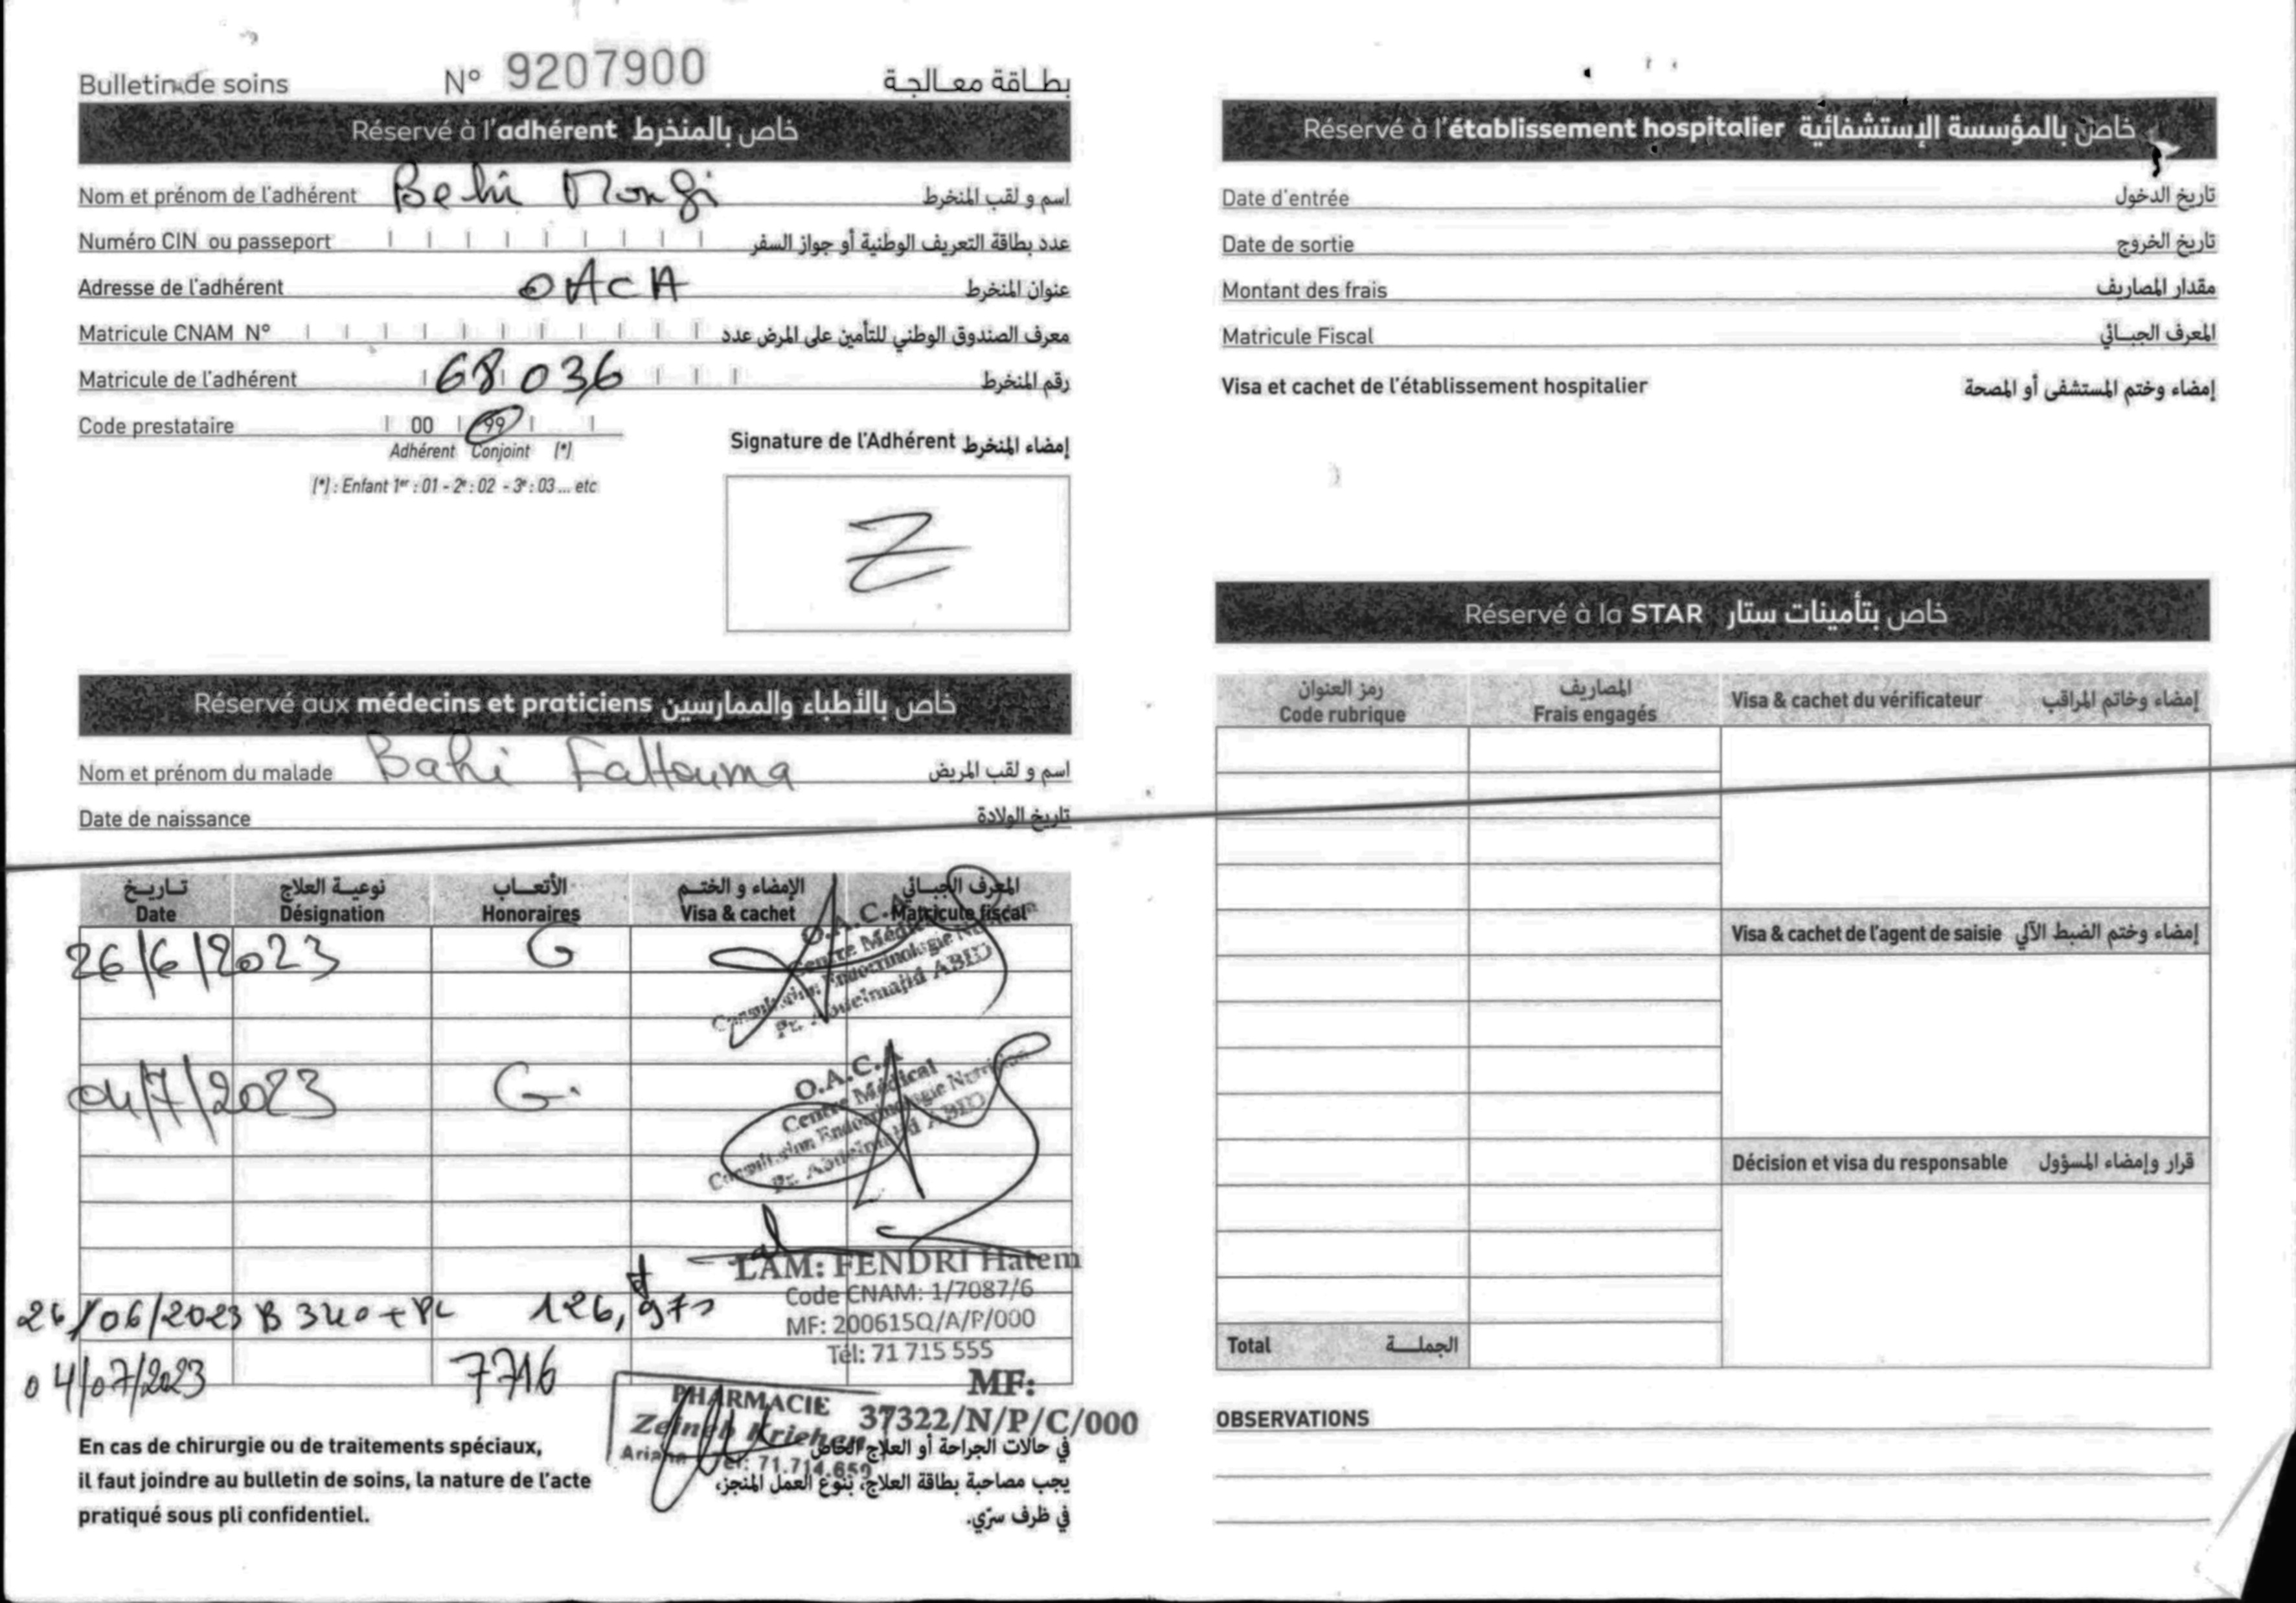 Bulletin de soins N° 9207900 بطـاقة معـالجة
Réservé à l'adhérent خاص بالمنخرط
Nom et prénom de l'adhérent Behi Mongi اسم و لقب المنخرط
Numéro CIN ou passeport عدد بطاقة التعريف الوطنية أو جواز السفر
Adresse de l'adhérent OACA عنوان المنخرط
Matricule CNAM N° معرف الصندوق الوطني للتأمين على المرض عدد
Matricule de l'adhérent 68036 رقم المنخرط
Code prestataire 00 99
Adhérent Conjoint (*)
(*) : Enfant 1er : 01 - 2e : 02 - 3e : 03 ... etc
Signature de l'Adhérent إمضاء المنخرط
Réservé aux médecins et praticiens خاص بالأطباء والممارسين
Nom et prénom du malade Bahi Fattouma اسم و لقب المريض
Date de naissance تاريخ الولادة
تـاريـخ نوعيـة العلاج الأتعـاب الإمضاء و الختـم المعرف الجبـائي
Date Désignation Honoraires Visa & cachet Matricule fiscal
26/6/2023 G
O.A.C.A
Centre Médical
Consultation Endocrinologie Nutrition
Pr. Abdelmajid ABID
04/7/2023 G.
O.A.C.A
Centre Médical
Consultation Endocrinologie Nutrition
Pr. Abdelmajid ABID
LAM: FENDRI Hatem
Code CNAM: 1/7087/6
26/06/2023 B 340 + PC 126,
MF: 200615Q/A/P/000
Tél: 71 715 555
04/07/2023 7716
MF:
37322/N/P/C/000
PHARMACIE
Zeineb Kriehen
Ariana Tel: 71.714.659
En cas de chirurgie ou de traitements spéciaux,
il faut joindre au bulletin de soins, la nature de l'acte
pratiqué sous pli confidentiel.
في حالات الجراحة أو العلاج الخاص
يجب مصاحبة بطاقة العلاج، بنوع العمل المنجز،
في ظرف سرّي.
Réservé à l'établissement hospitalier خاص بالمؤسسة الإستشفائية
Date d'entrée تاريخ الدخول
Date de sortie تاريخ الخروج
Montant des frais مقدار المصاريف
Matricule Fiscal المعرف الجبـائي
Visa et cachet de l'établissement hospitalier إمضاء وختم المستشفى أو المصحة
Réservé à la STAR خاص بتأمينات ستار
رمز العنوان المصاريف
Code rubrique Frais engagés Visa & cachet du vérificateur إمضاء وخاتم المراقب
Visa & cachet de l'agent de saisie إمضاء وختم الضبط الآلي
Décision et visa du responsable قرار وإمضاء المسؤول
Total الجملـــة
OBSERVATIONS